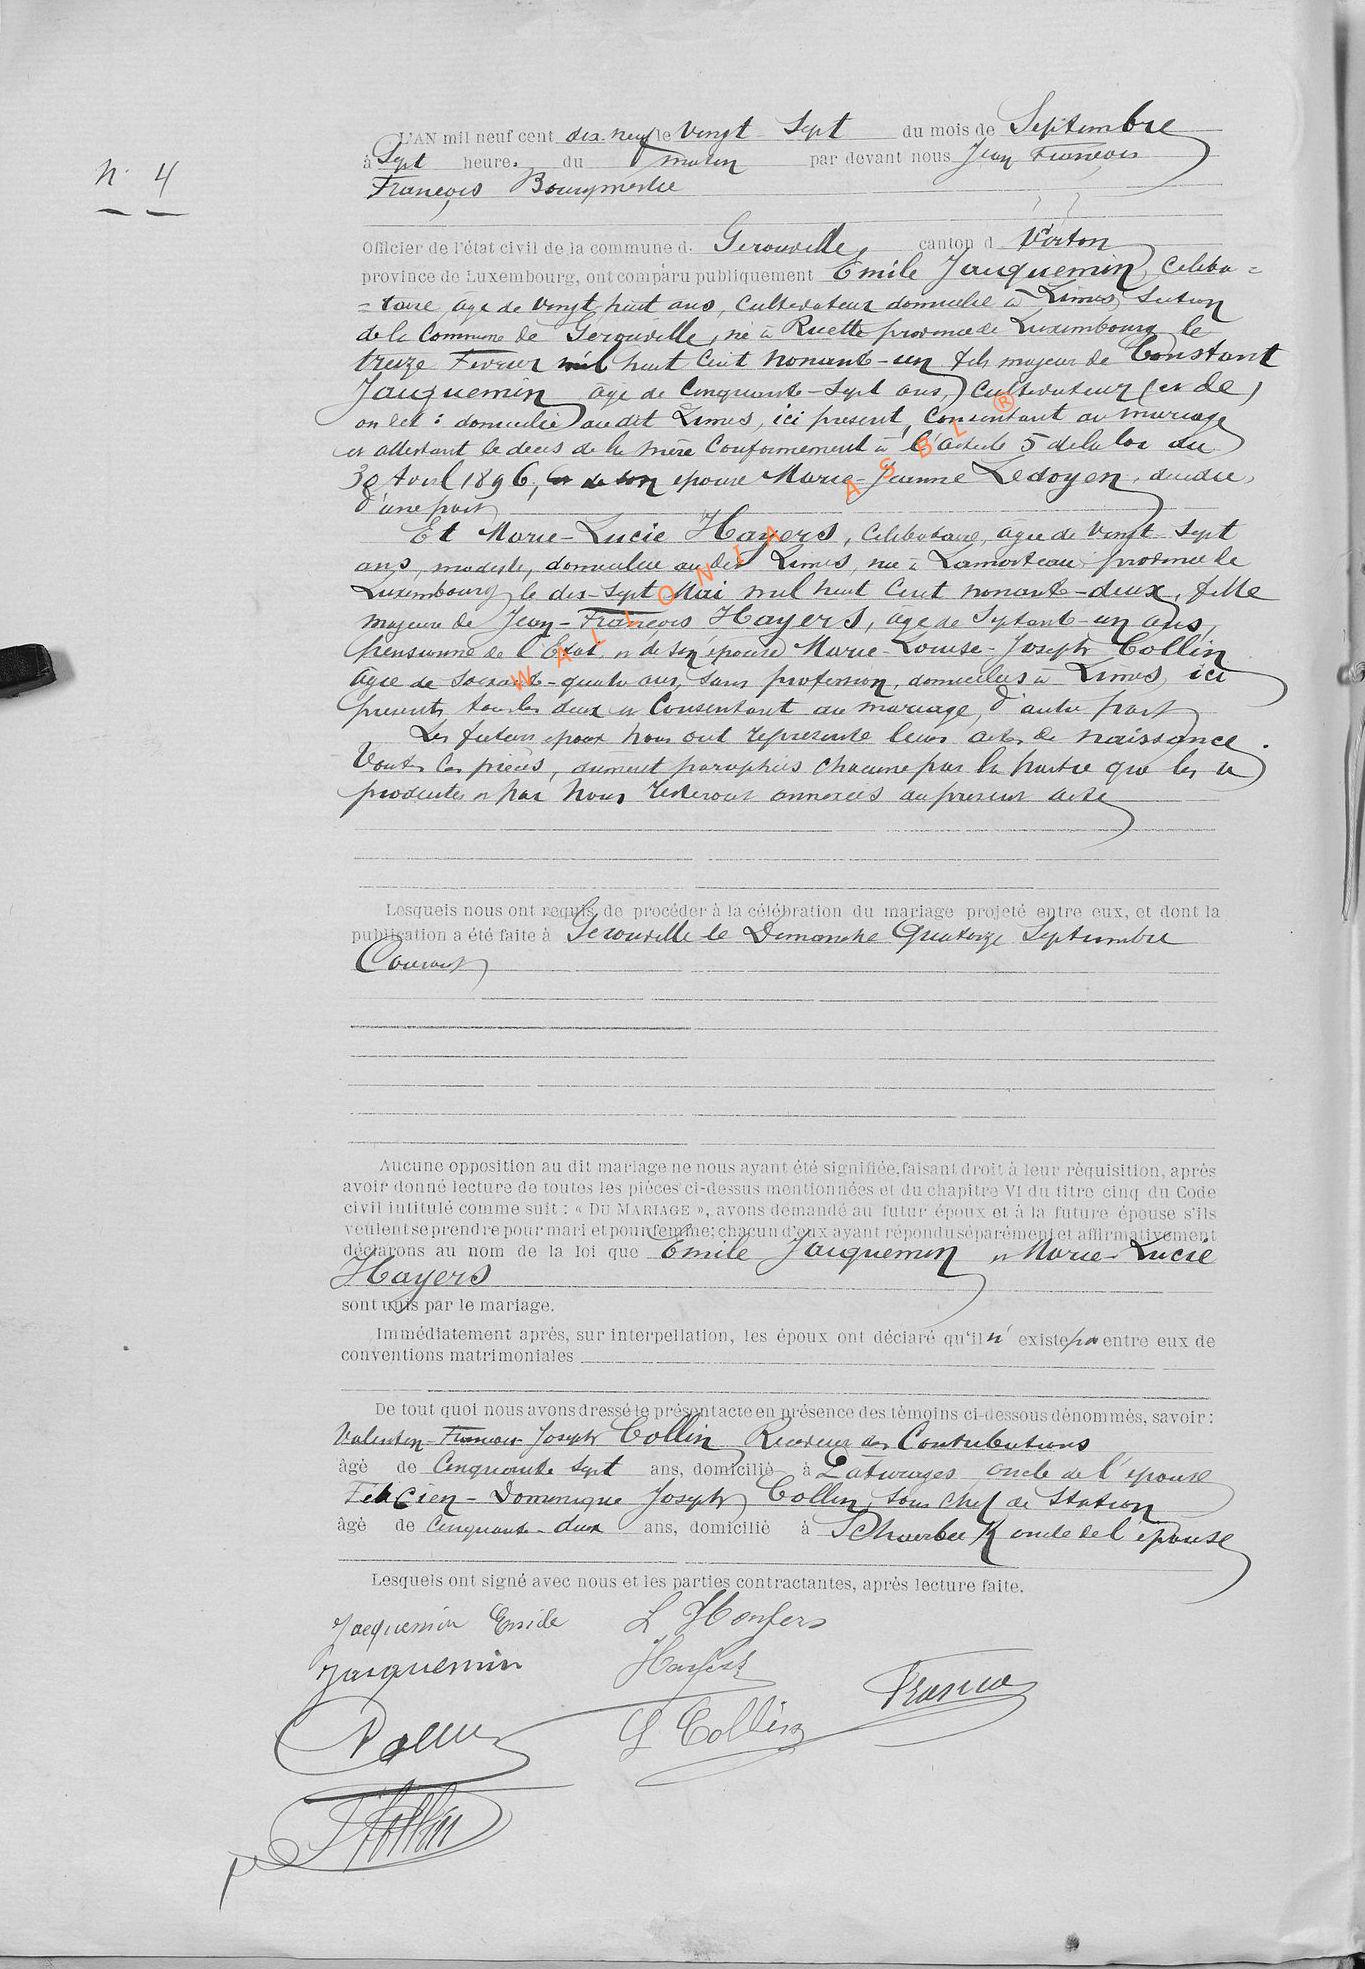 N° 4
L'AN mil neuf cent dix neuf le vingt-sept du mois de Septembre
à Sept heure. du matin par devant nous Jean François
François Bourgmestre
Officier de l'état civil de la commune d. Gérouville canton d Virton
province de Luxembourg, ont comparu publiquement Emile Jacquemin, céliba=
=taire, âgé de vingt huit ans, cultivateur domicilié à Limes, section
de la Commune de Gérouville, né à Ruette province de Luxembourg le
treize Février mil huit cent nonante-un fils majeur de Constant
Jacquemin âgé de cinquante-sept ans, cultivateur (et de)
on lit: domicilié au dit Limes, ici présent, consentant au mariage
et attestant le décès de la mère conformément à l'article 5 de la loi du
30 Avril 1896, et de son épouse Marie-Jeanne Ledoyen, décédée,
d'une part
Et Marie-Lucie Hayers, célibataire, âgée de vingt-sept
ans, modiste, domiciliée au dit Limes, née à Lamorteau province de
Luxembourg le dix-sept Mai mil huit cent nonante-deux, fille
majeure de Jean-François Hayers, âgé de septante-un ans,
pensionné de l'Etat et de son épouse Marie-Louise-Joseph Collin
âgée de soixante-quatre ans, sans profession, domiciliés à Limes, ici
présents tous les deux et consentant au mariage, d'autre part
Les futurs époux nous ont représenté leurs actes de naissance.
Toutes les pièces, dument paraphées chacune par la partie qui les a
produites et par nous resteront annexées au présent acte
Lesquels nous ont requis de procéder à la célébration du mariage projeté entre eux, et dont la
publication a été faite à Gérouville le Dimanche Quatorze Septembre
Courant
Aucune opposition au dit mariage ne nous ayant été signifiée, faisant droit à leur réquisition, après
avoir donné lecture de toutes les pièces ci-dessus mentionnées et du chapitre VI du titre cinq du Code
civil intitulé comme suit : « DU MARIAGE », avons demandé au futur époux et à la future épouse s'ils
veulent se prendre pour mari et pour femme; chacun d'eux ayant répondu séparément et affirmativement
déclarons au nom de la loi que Emile Jacquemin et Marie-Lucie
Hayers
sont unis par le mariage.
Immédiatement après, sur interpellation, les époux ont déclaré qu'il n' existe pas entre eux de
conventions matrimoniales
De tout quoi nous avons dressé le présent acte en présence des témoins ci-dessous dénommés, savoir :
Valentin-François-Joseph Collin Receveur des Contributions
âgé de Cinquante sept ans, domicilié à Paturages oncle de l'épouse
Félicien-Dominique Joseph Collin, sous chef de station
âgé de Cinquante-deux ans, domicilié à Schaerbeek oncle de l'épouse
Lesquels ont signé avec nous et les parties contractantes, après lecture faite.
Jacquemin Emile L Hayers
Jacquemin Hayers
L Collin
WALLONIA ASBL ®